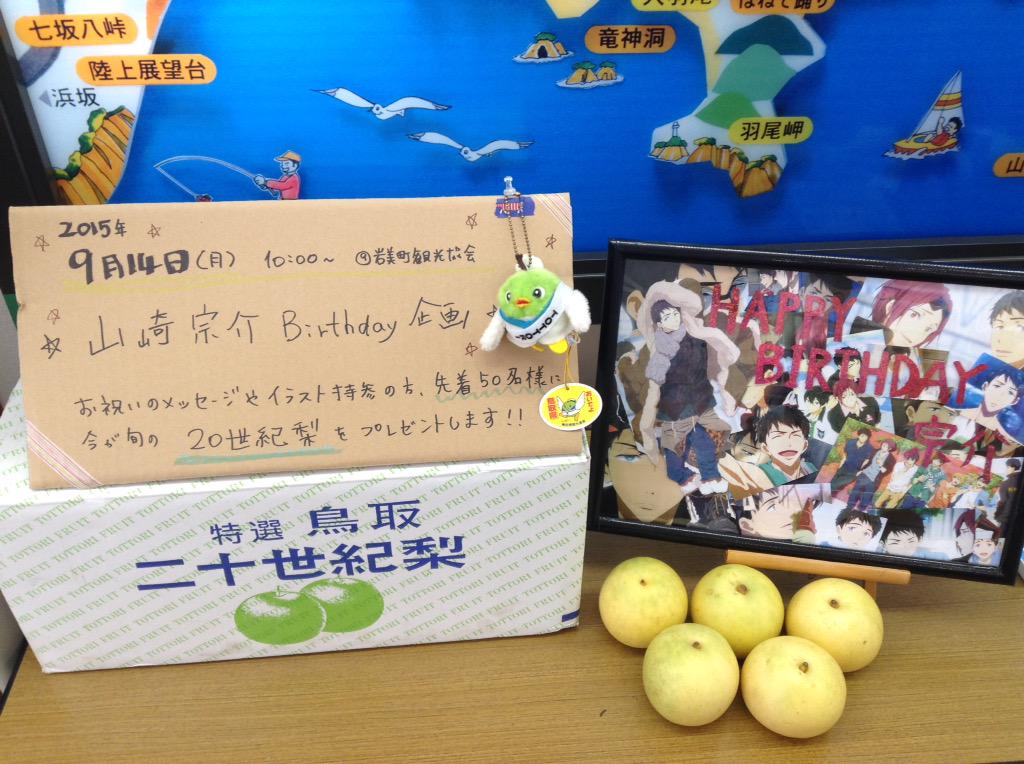 七坂八峠
陸上展望台
浜坂
竜神洞
はねそ踊り
羽尾岬
2015年
9月14日(月) 10:00~ @岩美町観光協会
山崎宗介 Birthday 企画
お祝いのメッセージやイラスト持参の方、先着50名様に
今が旬の 20世紀梨をプレゼントします!!
TOTTORI
鳥取県
特選 鳥取
二十世紀梨
TOTTORI FRUIT
HAPPY
BIRTHDAY
宗介